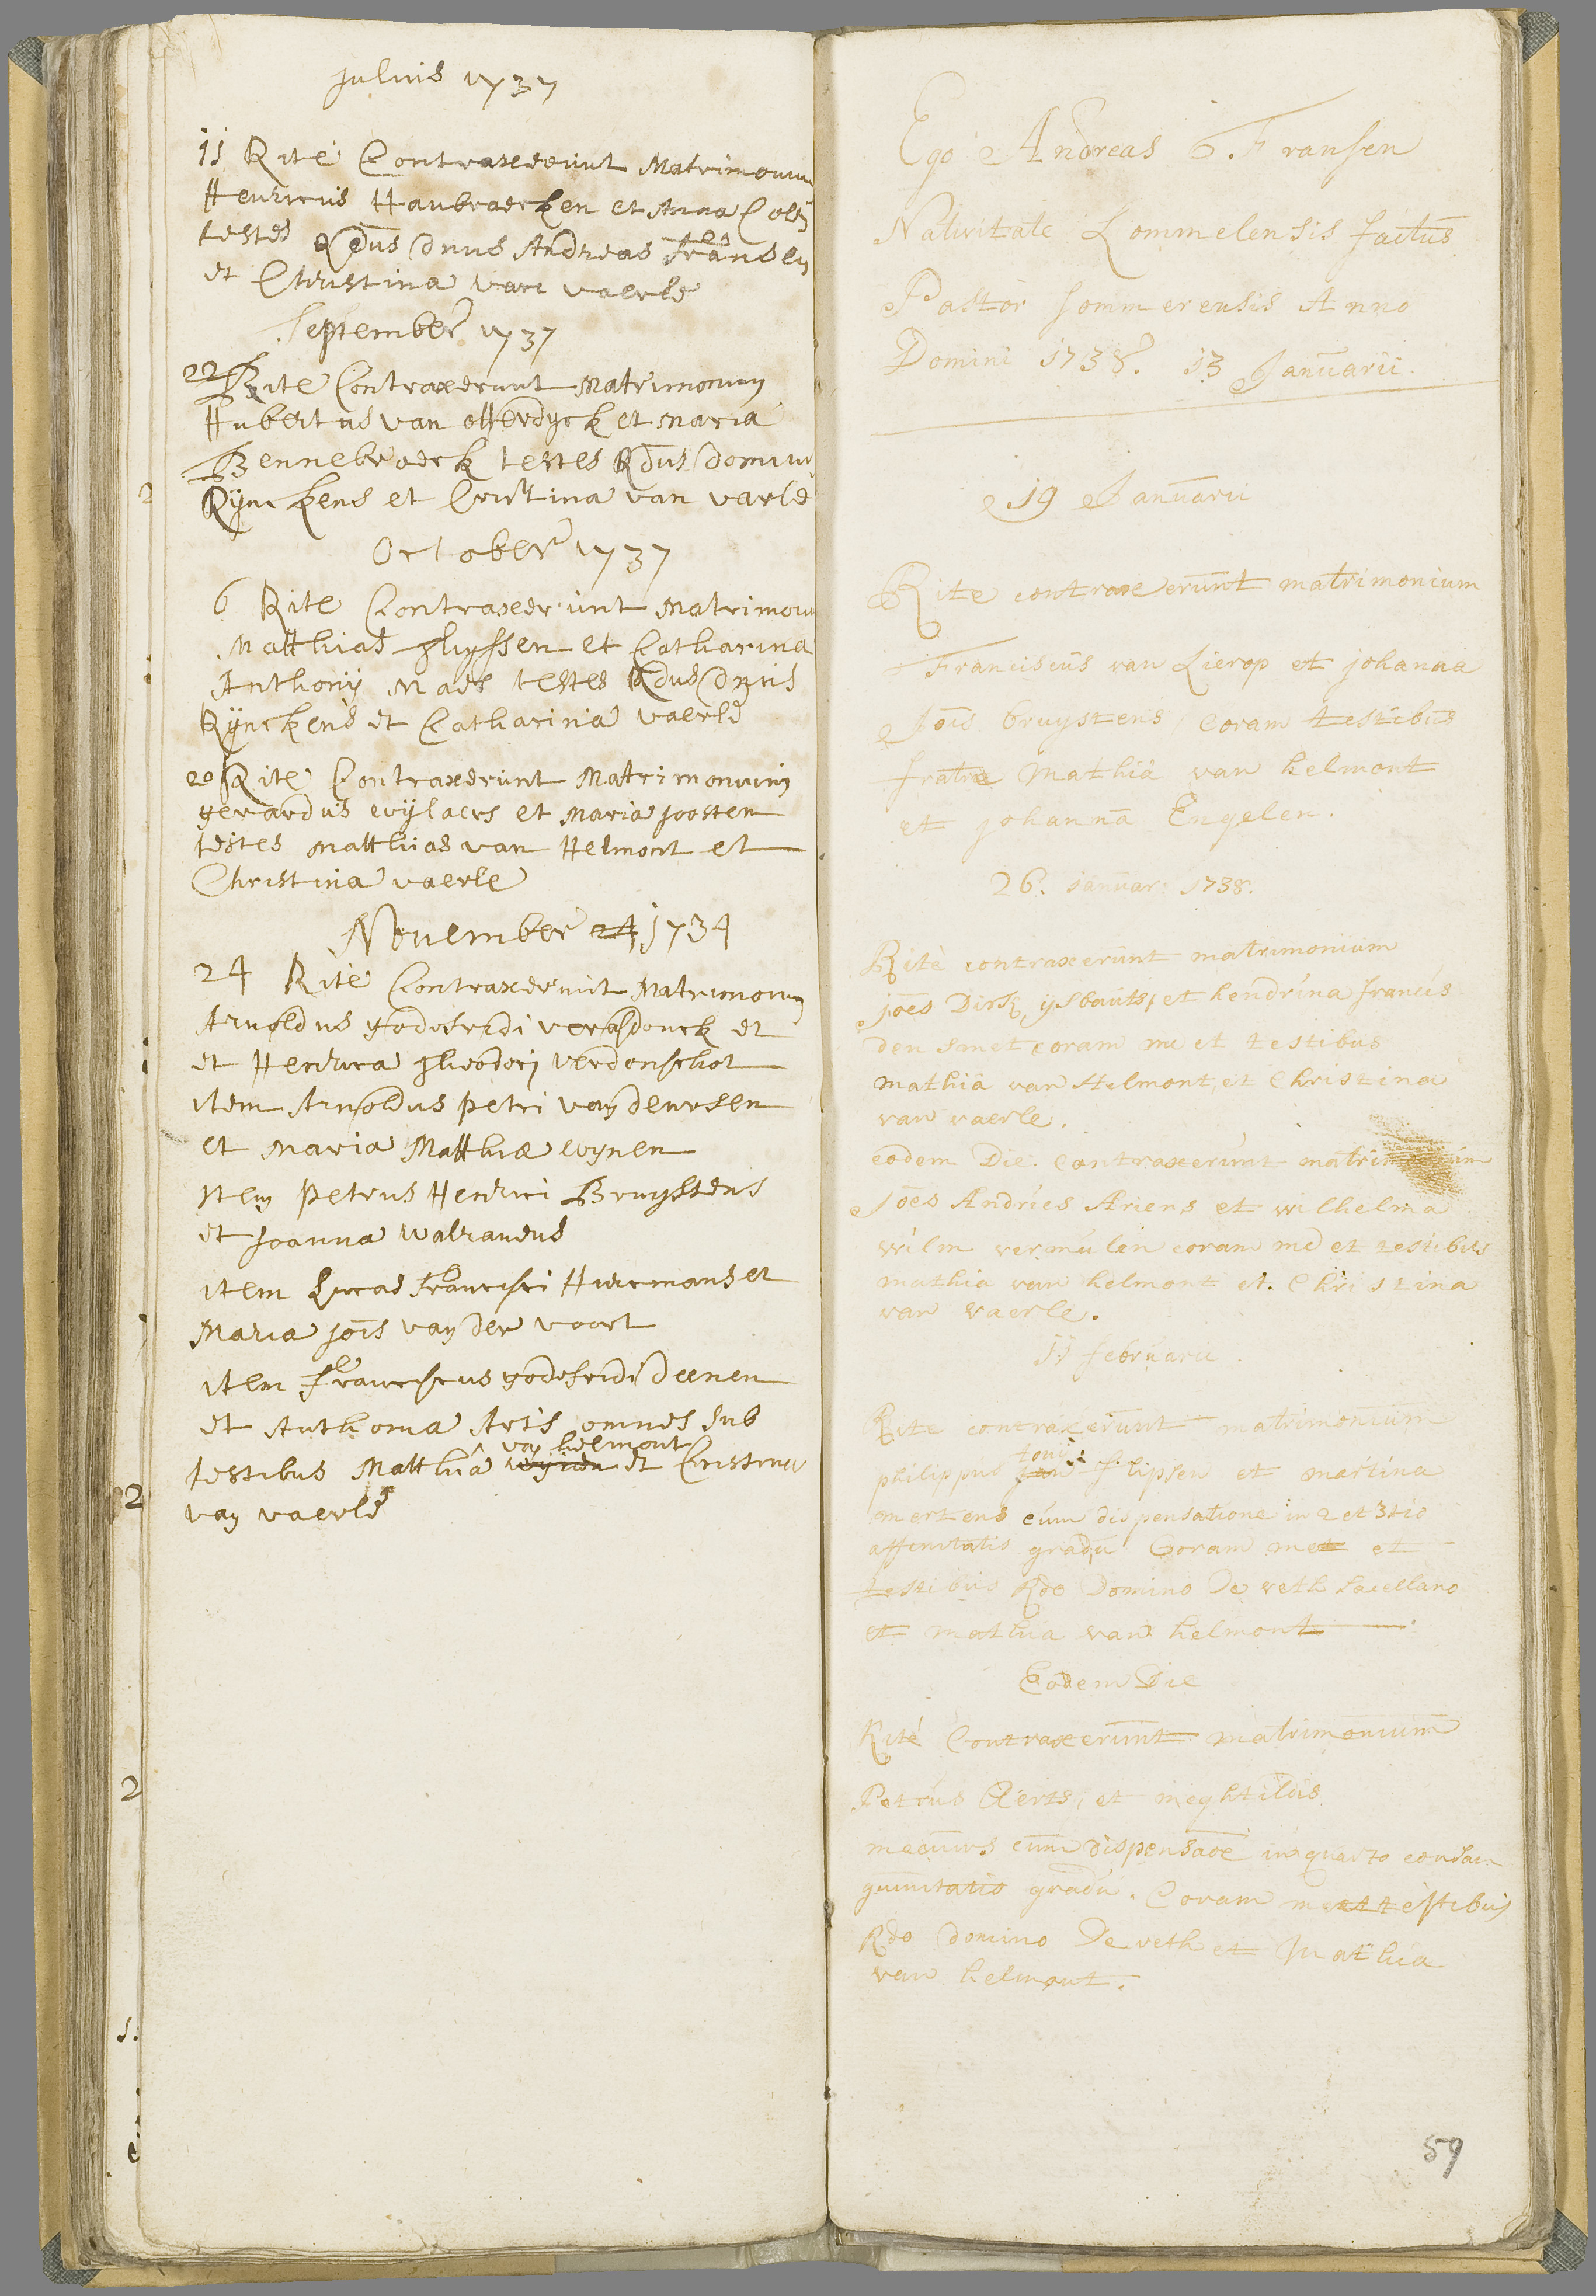 Julius 1737
11 Rite Contraxerunt Matrimonium
Henricus Haubraecken et Anna Colen
testes Rdus Dnus Andreas Fransen
et Christina van vaerle
September 1737
22 Rite Contraxerunt Matrimonium
Hubertus van otterdyck et Maria
Bennebroeck testes Rdus Dominus
Rÿnckens et Cristina van varle
October 1737
6 Rite Contraxerunt Matrimoni
Matthias Thyssen et Catharina
Anthonij Maes testes Rdus Dnus
Rÿnckens et Catharina vaerle
20 Rite Contraxerunt Matrimonium
gerardus wijlaers et Maria Joosten
testes Matthias van Helmont et
Christina vaerle
November 24 1734
24 Rite Contraxerunt Matrimonium
Arnoldus godefridi verasdonck et
et Henrica Theodori verdonschot
item Arnoldus petri van deursen
et Maria Matthiæ wynen
Item petrus Henrici Bruystens
et Joanna walravens
item Lucas Francisci Hurcmans et
Maria Jois van der voort
item Franciscus godefridi deenen
et Anthonia Arts omnes sub
van helmont
testibus Matthia wijnen et Cristina
van vaerle
Ego Andreas G. Fransen
Nativitate Lommelensis factus
Pastor Sommerensis Anno
Domini 1738. 13 Januarii.
19 Januarii
Rite contraxerunt matrimonium
Franciscus van Lierop et johanna
Jois bruystens, coram testibus
fratre Mathia van helmont
et johanna Engelen.
26. januar: 1738.
Rite contraxerunt matrimonium
joes Dirx ysbouts, et hendrina francis
den smet coram me et testibus
mathia van Helmont, et Christina
van vaerle.
eodem Die. contraxerunt matrimonium
Joes Andries Ariens et wilhelma
wilm vermulen coram me et testibus
mathia van helmont et. Christina
van vaerle.
11 februarii.
Rite contraxerunt matrimonium
toni:
philippus jan flipsen et martina
mertens cum dispensatione in 2 et 3tio
affinitatis gradu. Coram me et
testibus Rdo Domino De veth sacellano
et mathia van helmont
Eodem Die
Rite Contraxerunt matrimonium
Petrus Aerts, et meghtildis
meeuws cum dispensaoe in quarto consan
guinitatis gradu. Coram me et testibus
Rdo Domino De veth et Mathia
van helmont.
59